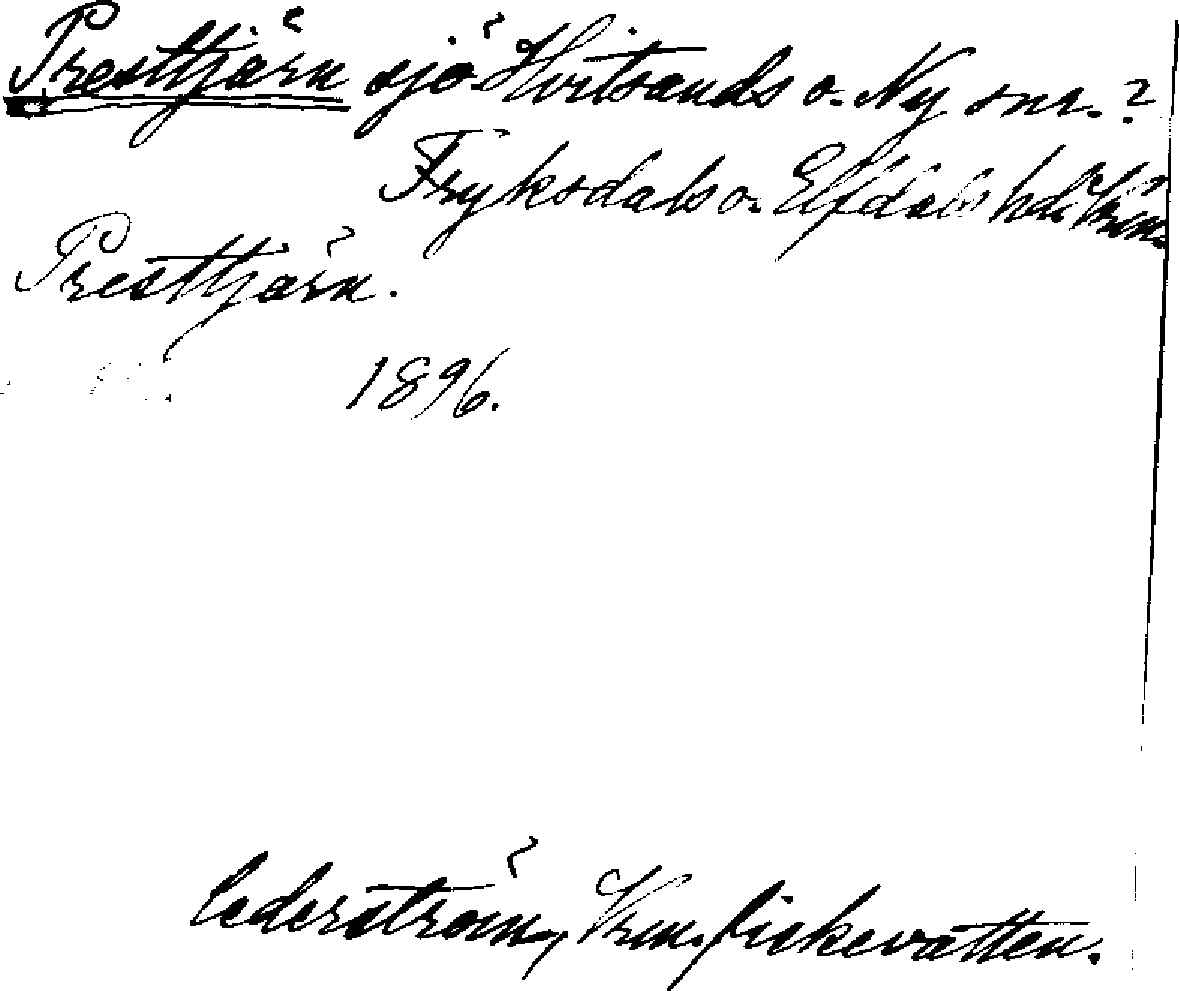 Presttjärn sjö Hvitsands o. Ny snr.?
Fryksdals o. Elfdals hdr Vrm.
Presttjärn.
1896.
Cederström, Vrm. fiskevatten.